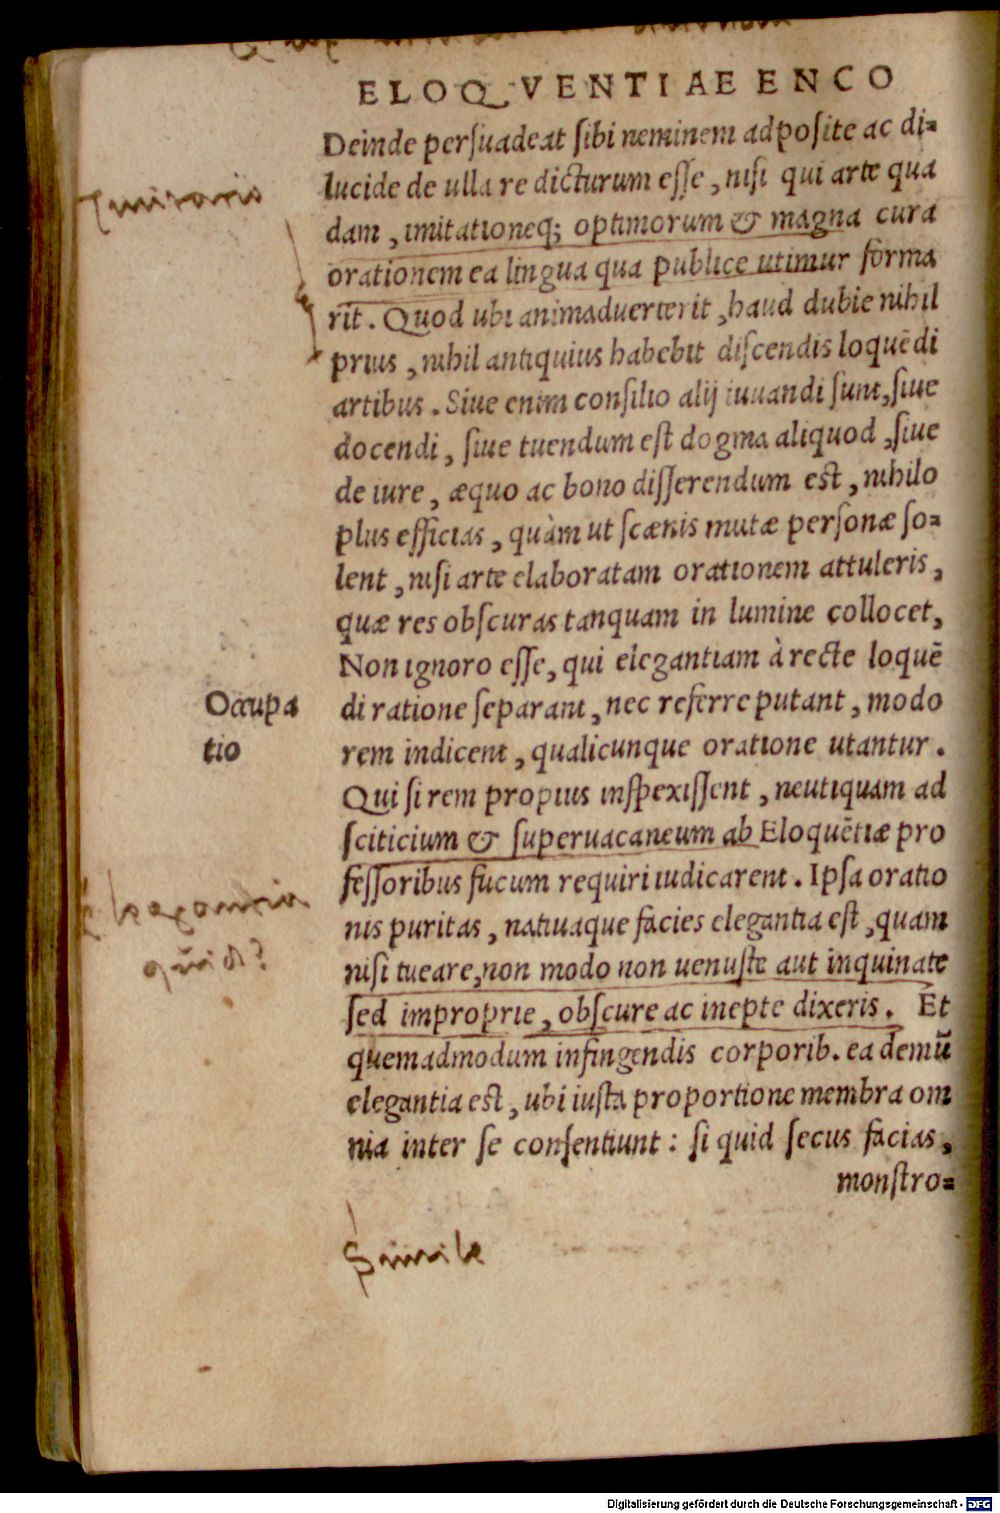 ELOQVENTIAE ENCO
Deinde persuadeat sibi neminem adposite ac di-
lucide de ulla re dicturum esse, nisi qui arte qua
Imitatio
dam, imitationeq; optimorum & magna cura
orationem ea lingua qua publice utimur forma
rit. Quod ubi animaduerterit, haud dubie nihil
prius, nihil antiquius habebit discendis loquẽdi
artibus. Siue enim consilio alij iuuandi sunt, siue
docendi, siue tuendum est dogma aliquod, siue
de iure, æquo ac bono disserendum est, nihilo
plus efficias, quàm ut scænis mutæ personæ so-
lent, nisi arte elaboratam orationem attuleris,
quæ res obscuras tanquam in lumine collocet,
Non ignoro esse, qui elegantiam à recte loquẽ
Occupa
di ratione separant, nec referre putant, modo
tio
rem indicent, qualicunque oratione utantur.
Qui si rem propius inspexissent, neutiquam ad
sciticium & superuacaneum ab Eloquẽtiæ pro
fessoribus fucum requiri iudicarent. Ipsa oratio
nis puritas, natiuaque facies elegantia est, quam
quid?
nisi tueare, non modo non uenuste aut inquinate
sed improprie, obscure ac inepte dixeris. Et
quemadmodum in fingendis corporib. ea demũ
elegantia est, ubi iusta proportione membra om
nia inter se consentiunt: si quid secus facias,
monstro-
Simile
Digitalisierung gefördert durch die Deutsche Forschungsgemeinschaft - DFG